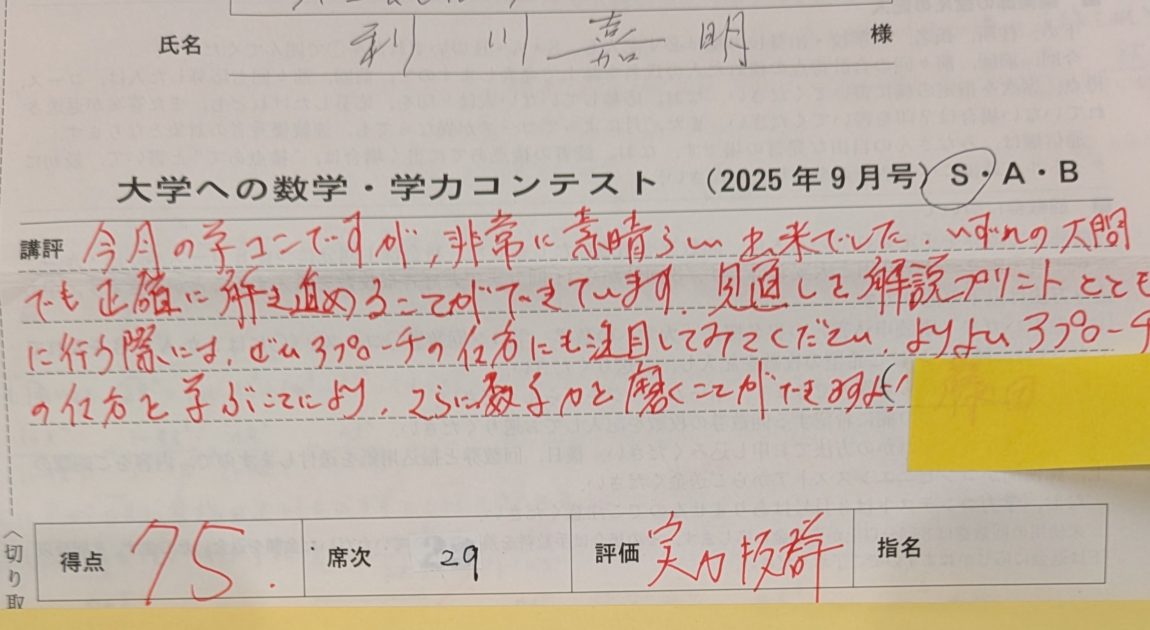 氏名 利川嘉明 様
大学への数学・学力コンテスト (2025年9月号) S・A・B
講評 今月の学コンですが,非常に素晴らしい出来でした.いずれの大問
でも正確に解き進めることができています.見直しを解説プリントととも
に行う際には,ぜひアプローチの仕方にも注目してみてください.よりよいアプローチ
の仕方を学ぶことにより,さらに数学力を磨くことができますよ!
得点 75. 席次 29 評価 実力抜群 指名
切り取